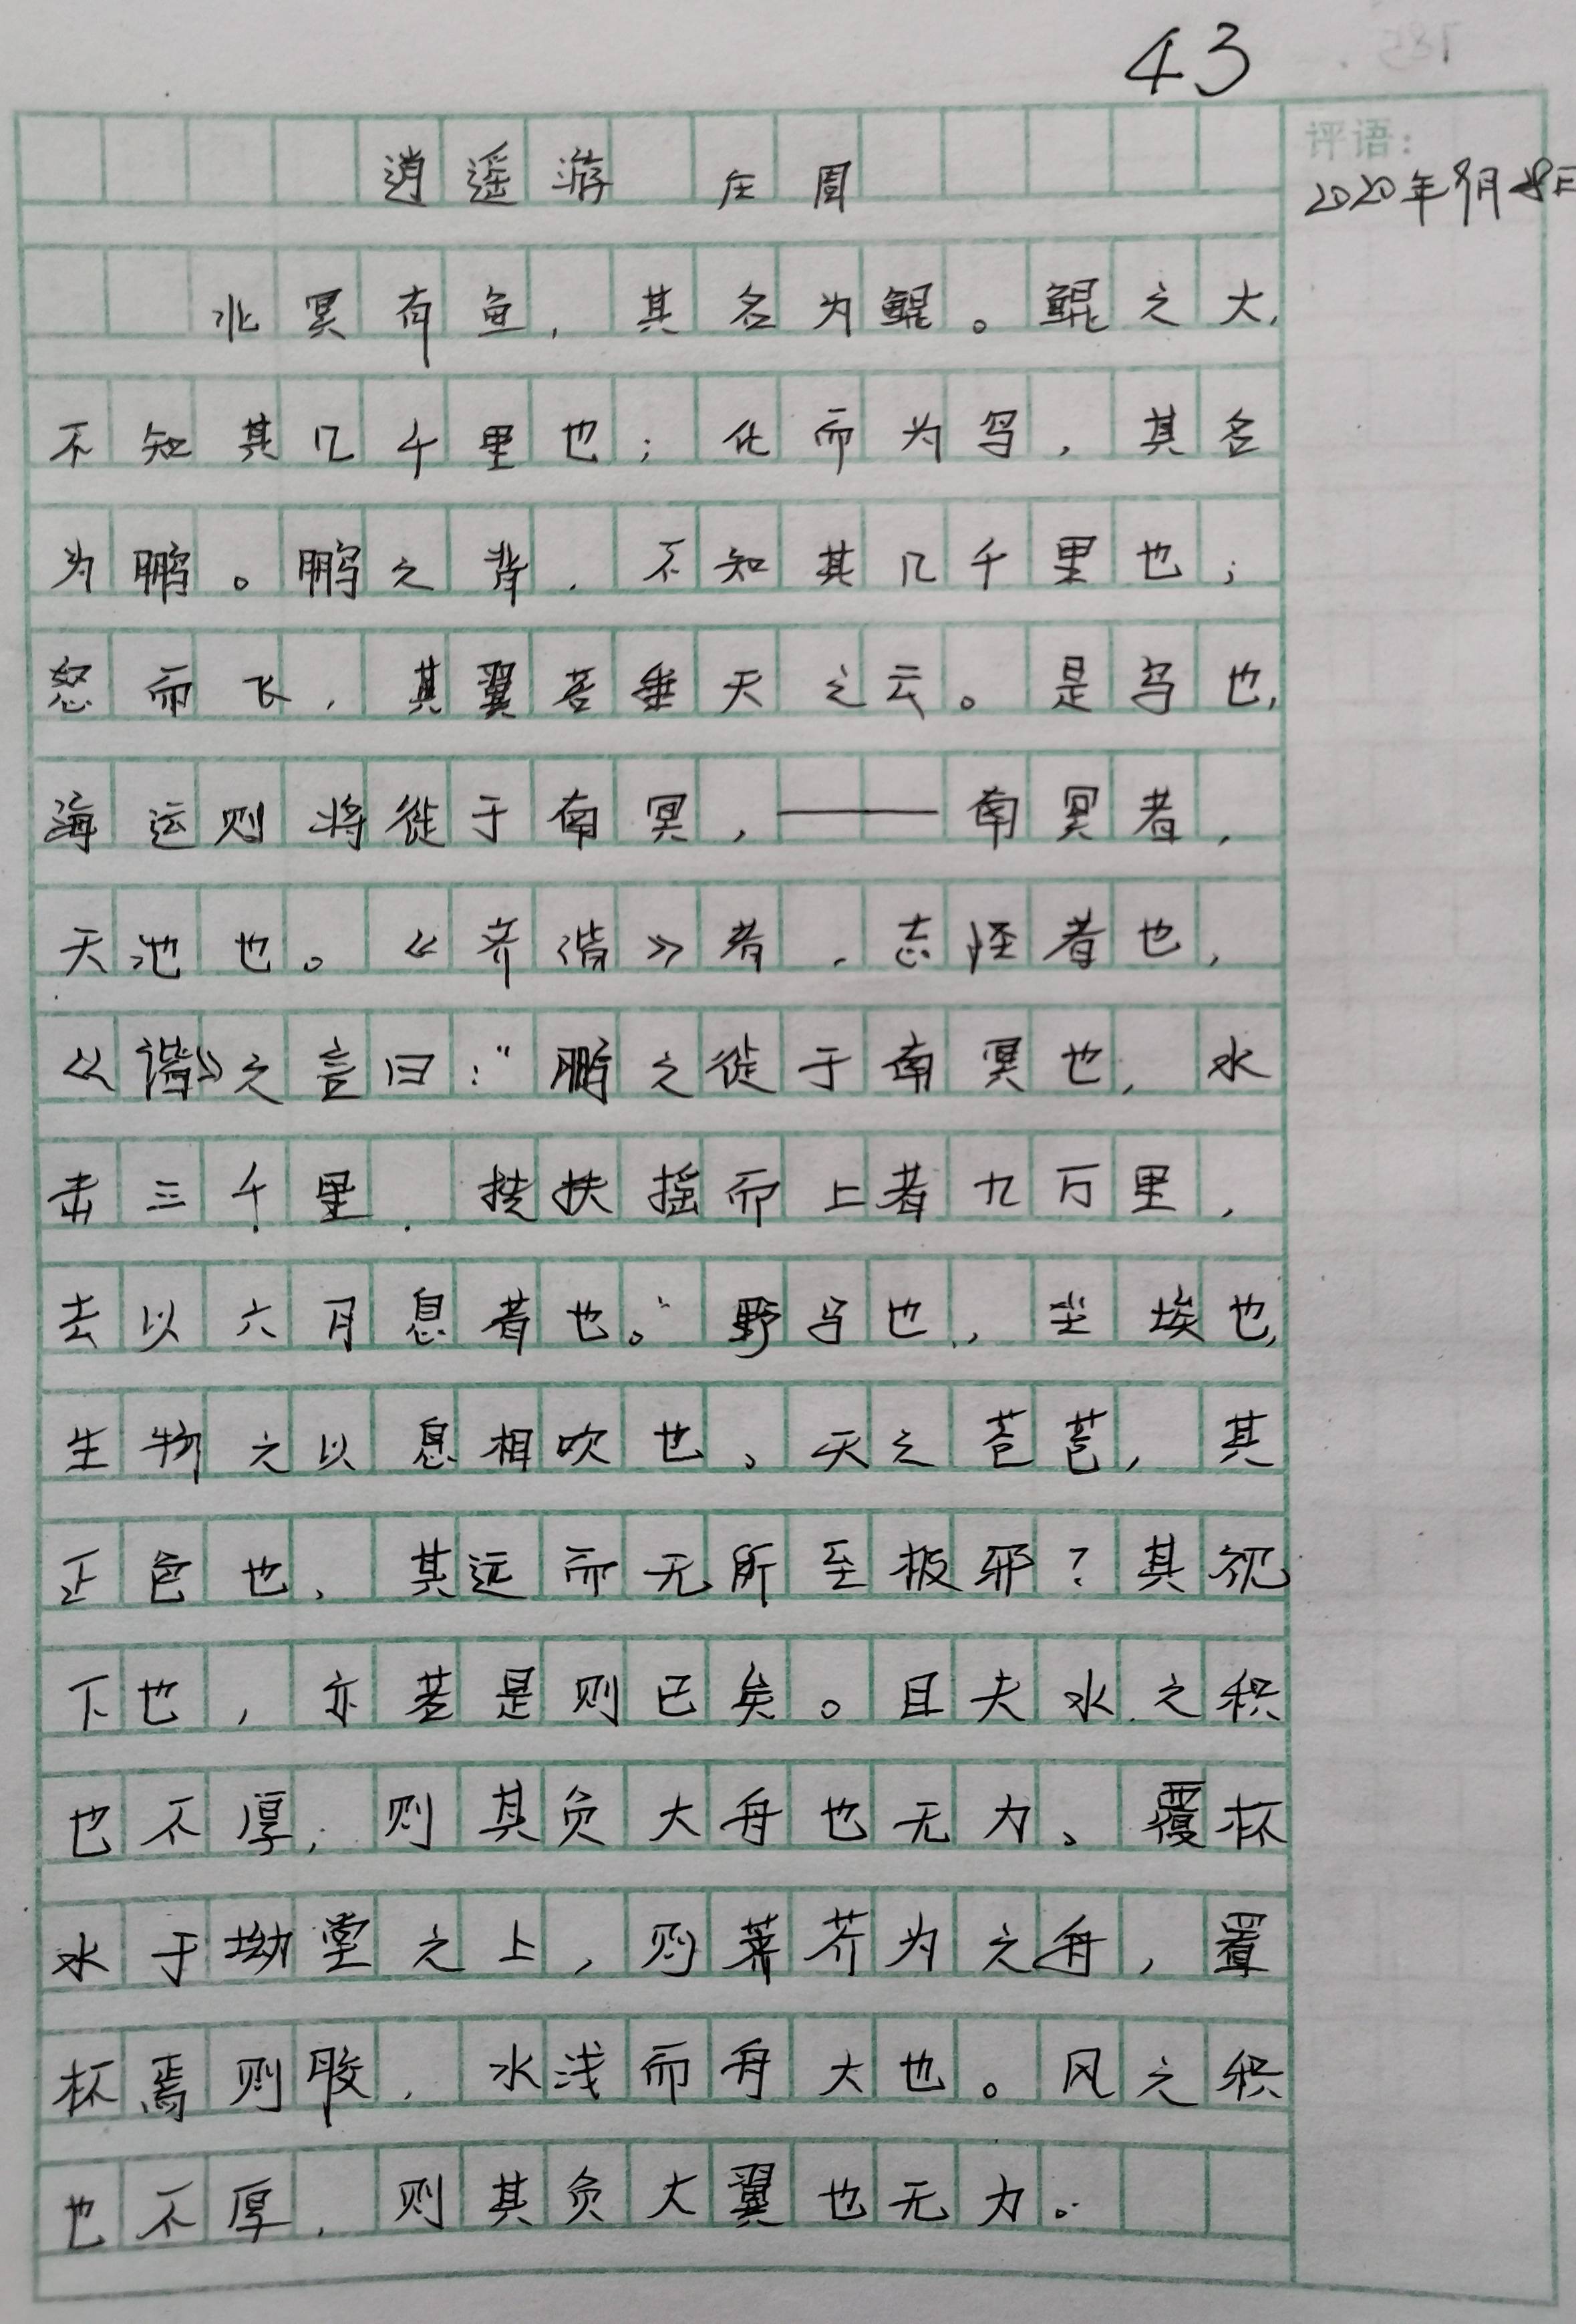 43
逍遥游 庄周
评语:
2020年9月28日
北冥有鱼,其名为鲲。鲲之大,
不知其几千里也;化而为鸟,其名
为鹏。鹏之背,不知其几千里也;
怒而飞,其翼若垂天之云。是鸟也,
海运则将徙于南冥,——南冥者,
天池也。《齐谐》者,志怪者也,
《谐》之言曰:"鹏之徙于南冥也,水
击三千里,抟扶摇而上者九万里,
去以六月息者也。"野马也,尘埃也,
生物之以息相吹也、天之苍苍,其
正色也、其远而无所至极邪?其视
下也,亦若是则已矣。且夫水之积
也不厚,则其负大舟也无力、覆杯
水于坳堂之上,则莽芥为之舟,置
杯焉则胶,水浅而舟大也。风之积
也不厚,则其负大翼也无力。